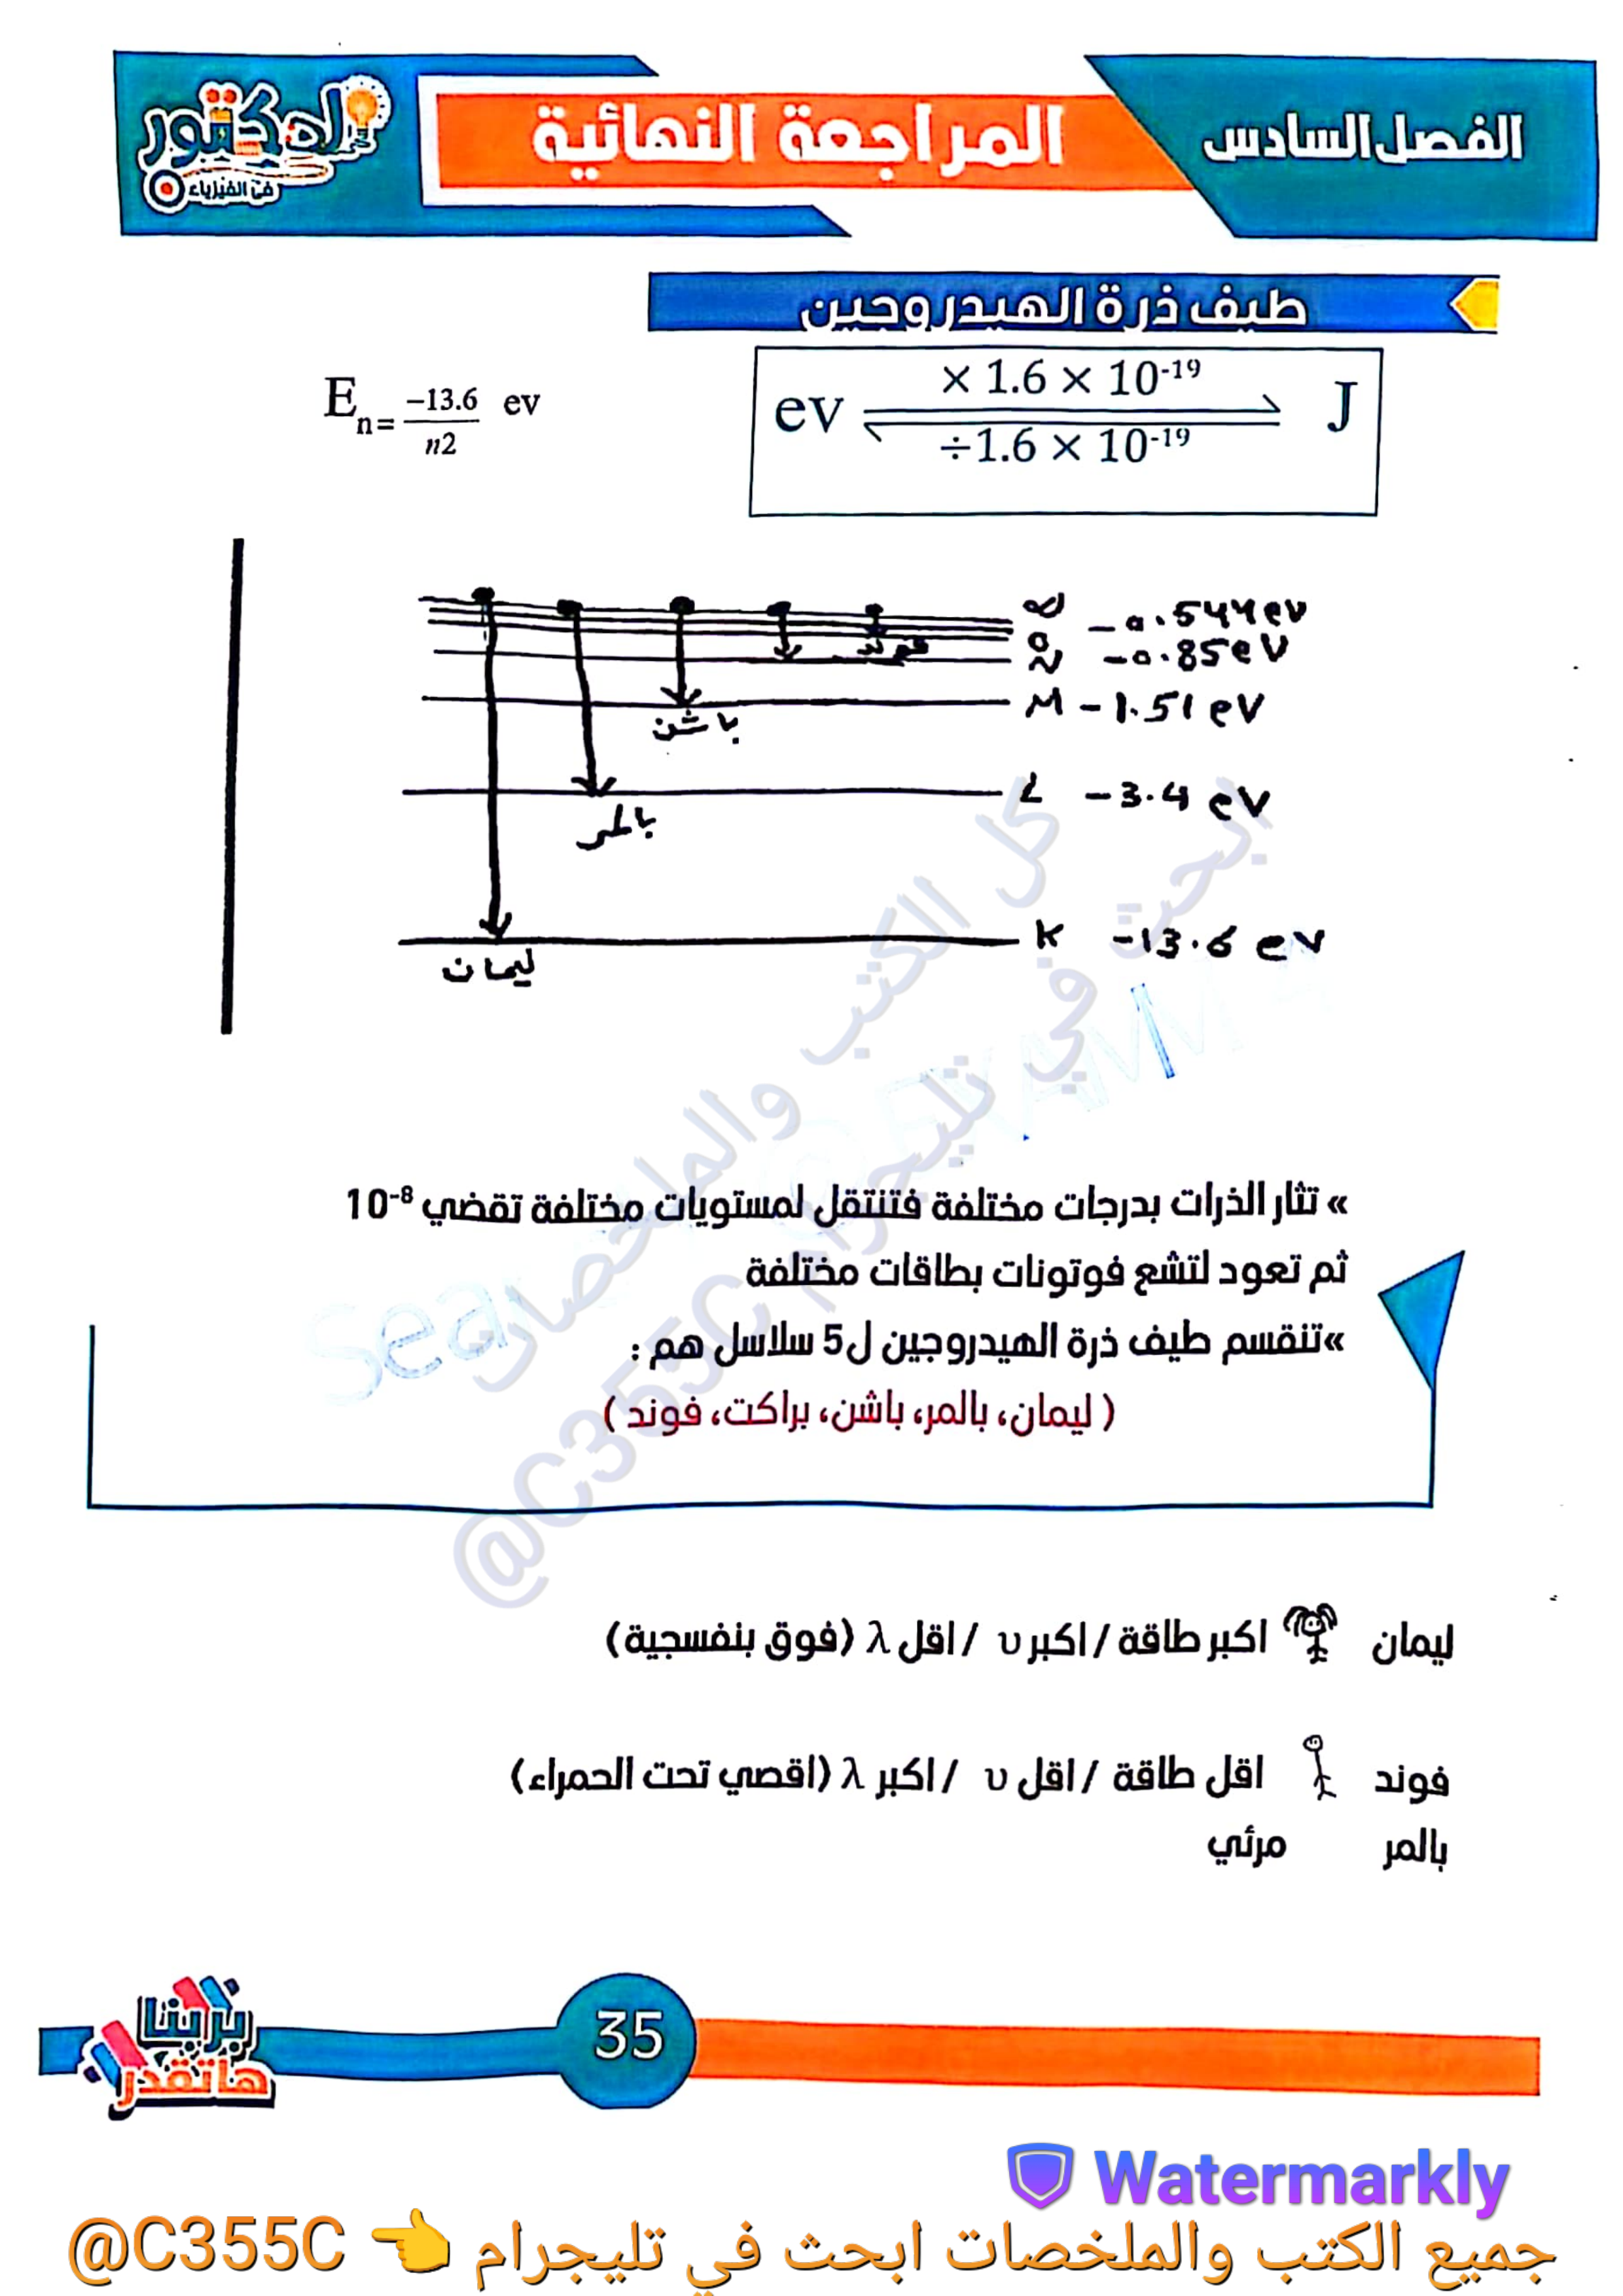 الفصل السادس
المراجعة النهائية
الدكتور
في الفيزياء
طيف ذرة الهيدروجين
E n= −13.6 / n2 ev
ev × 1.6 × 10⁻¹⁹ J
÷1.6 × 10⁻¹⁹
∞
O −0.544 eV
N −0.85 eV
M −1.51 eV
L −3.4 eV
K −13.6 eV
فوند
باشن
بالمر
ليمان
» تثار الذرات بدرجات مختلفة فتنتقل لمستويات مختلفة تقضي 10⁻⁸
ثم تعود لتشع فوتونات بطاقات مختلفة
»تنقسم طيف ذرة الهيدروجين ل5 سلاسل هم :
( ليمان، بالمر، باشن، براكت، فوند )
ليمان اكبر طاقة / اكبر υ / اقل λ (فوق بنفسجية)
فوند اقل طاقة / اقل υ / اكبر λ (اقصي تحت الحمراء)
بالمر مرئي
كل الكتب والملخصات
ابحث في تليجرام
@C355C
بربنا
هاتقدر
35
Watermarkly
جميع الكتب والملخصات ابحث في تليجرام 👈 @C355C